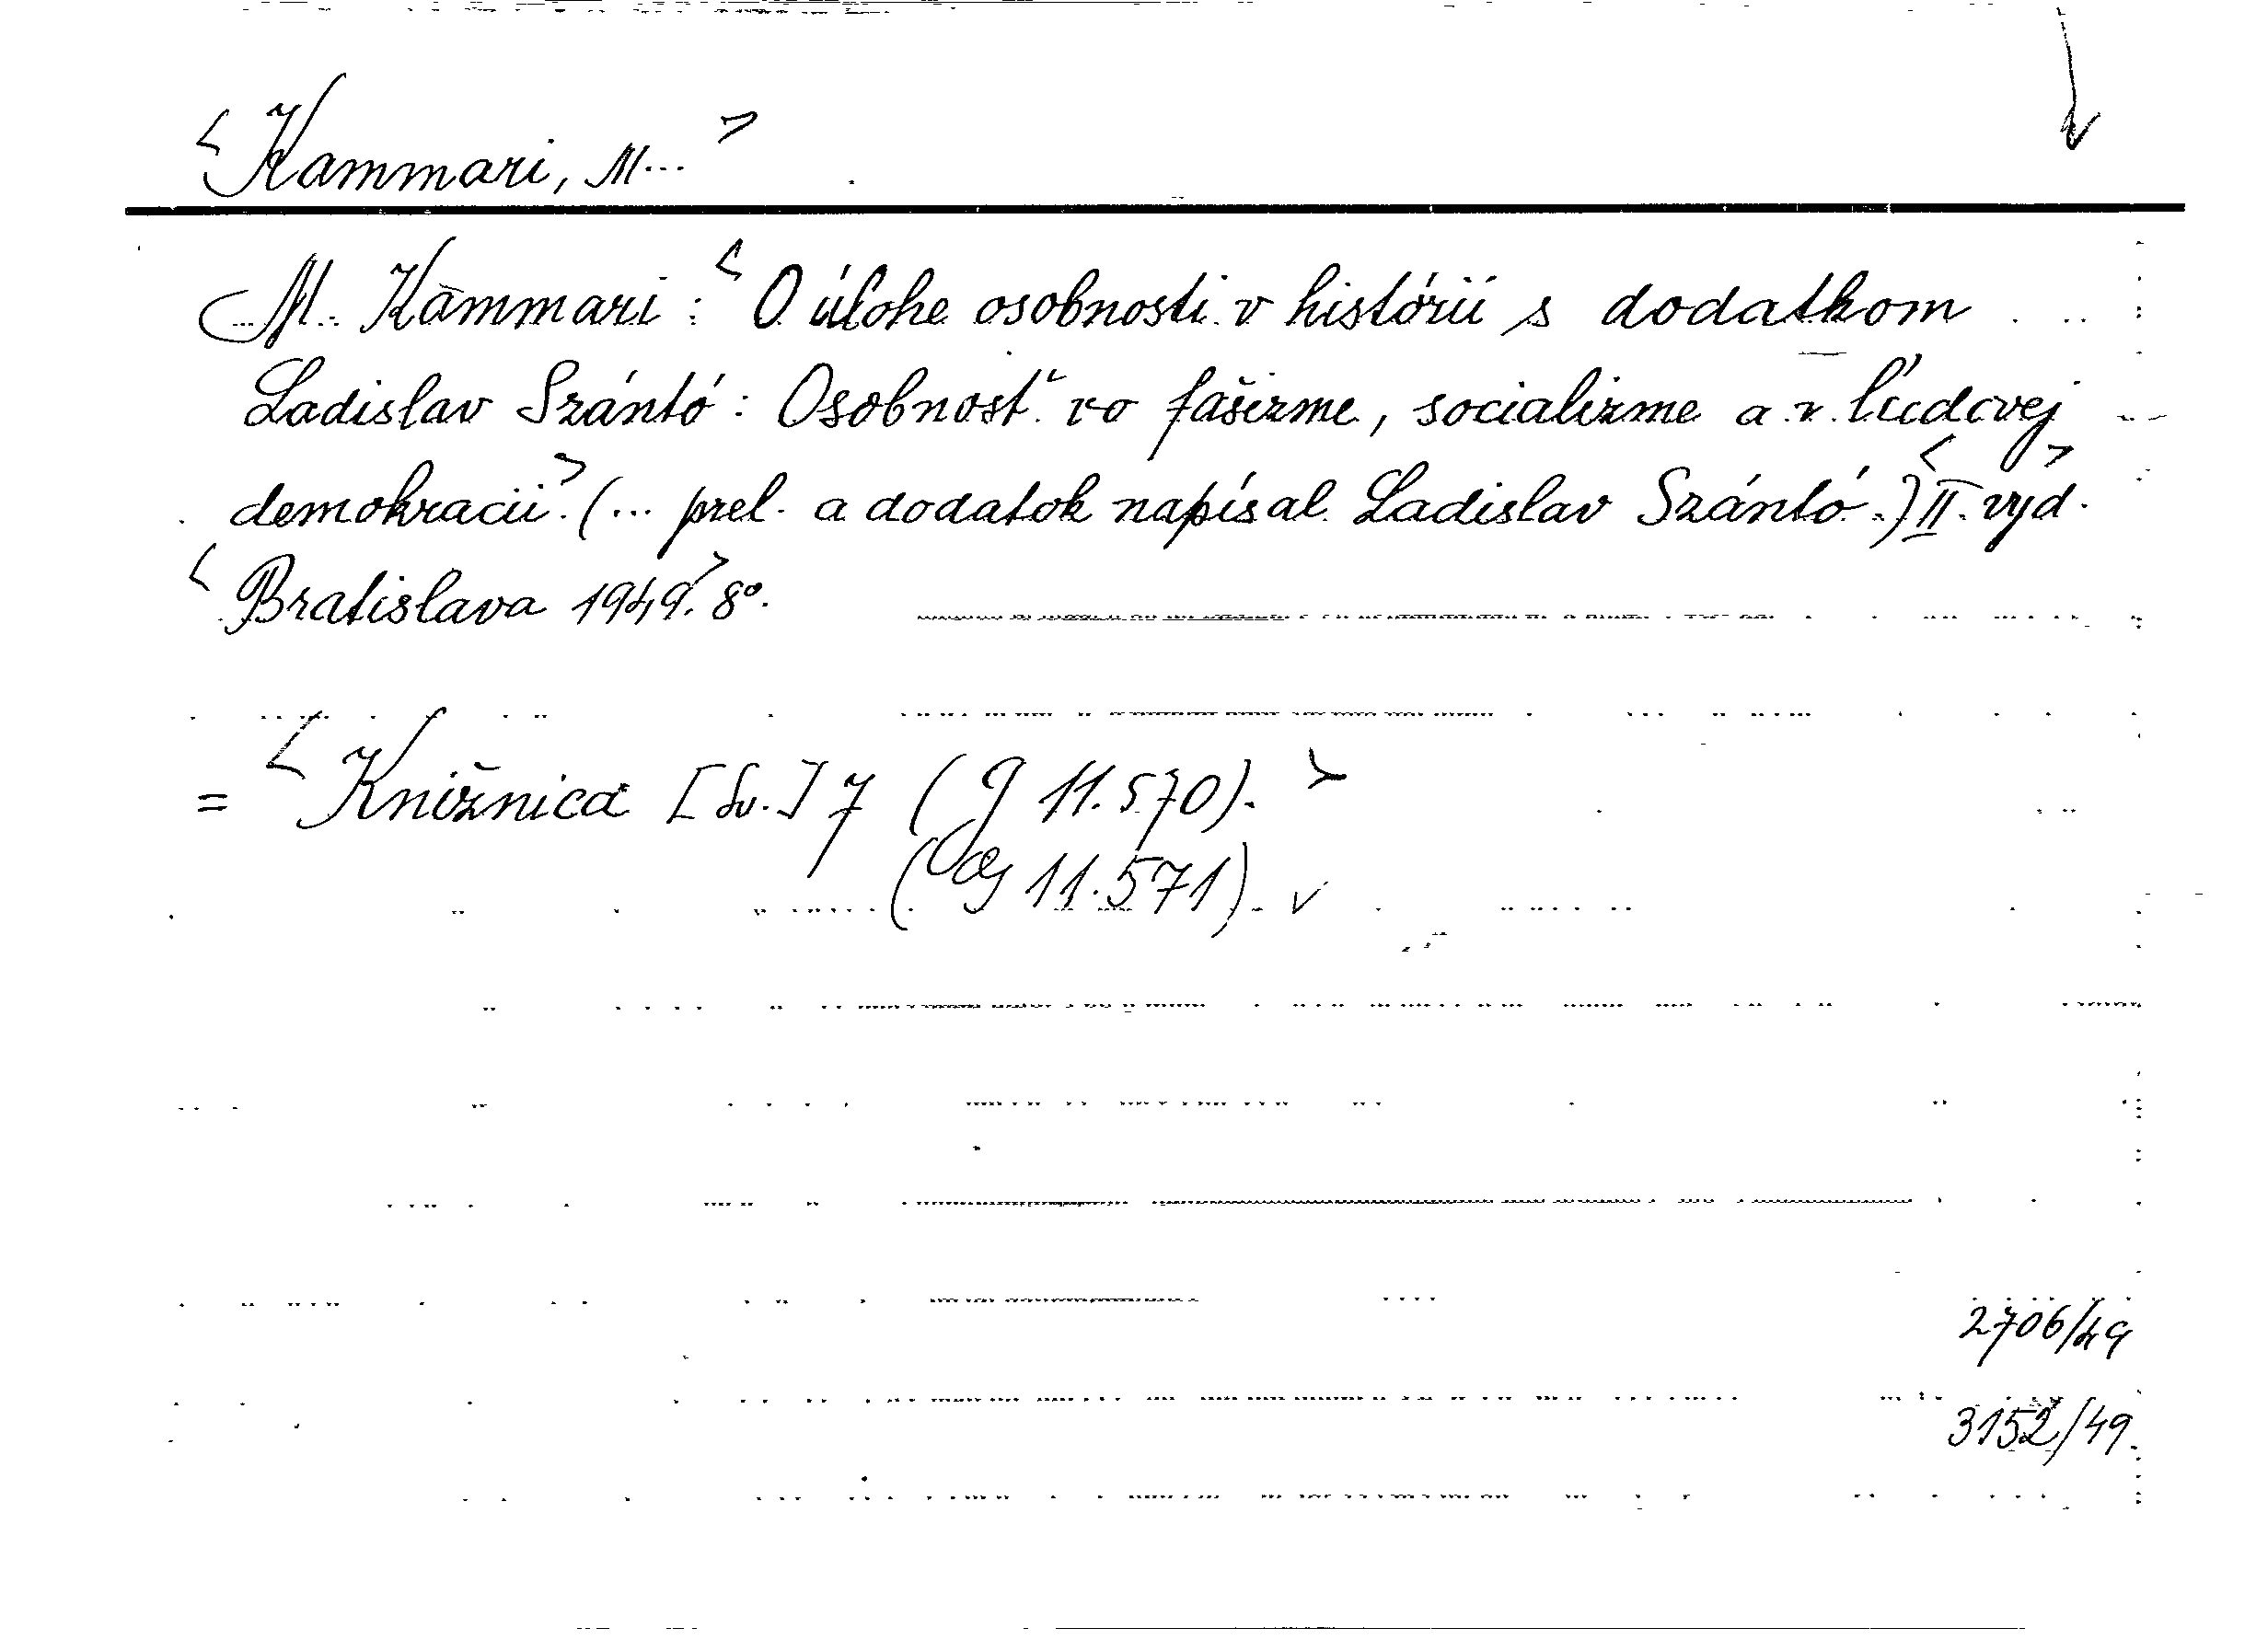 <Kammari, M...>
M. Kammari: <O úlohe osobnosti v histórii s dodatkom
Ladislav Szántó: Osobnosť vo fašizme, socializme a v ľudovej
demokracii>. (... prel. a dodatok napísal Ladislav Szántó.) <II. vyd.>
<Bratislava 1949>. 8°.
= <Knižnica [Sv.] 7 (g 11.570).>
(Og 11.571). v
2706/49
3152/49.